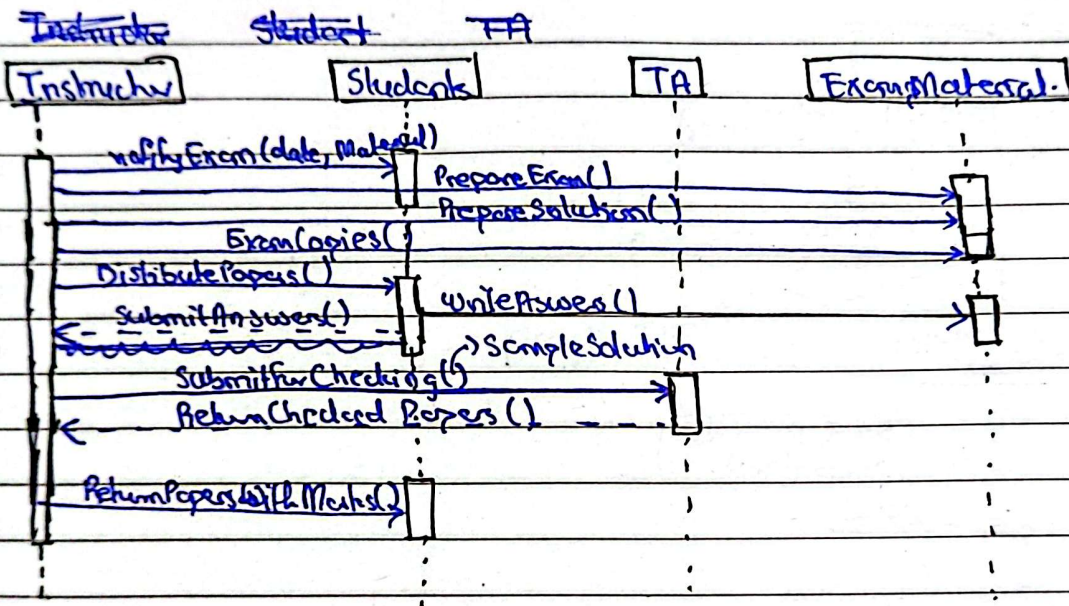 Instructor Student TA
Instructor Students TA ExamMaterial.
notifyExam(date, Material)
PrepareExam()
PrepareSolution()
ExamCopies()
DistibutePapers()
writeAswer()
SubmitAnswers()
SampleSolution
SubmitForChecking()
ReturnChecked Papers()
ReturnPapersWithMarks()